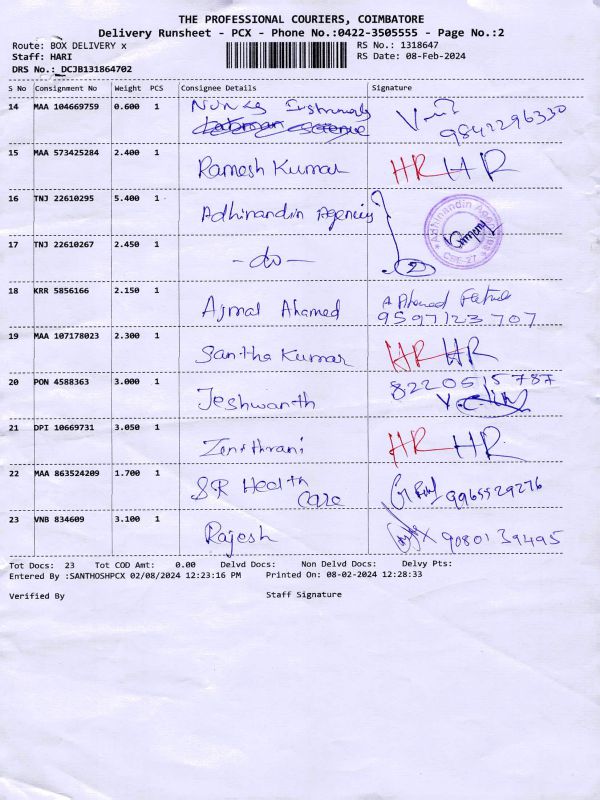 THE PROFESSIONAL COURIERS, COIMBATORE
Delivery Runsheet - PCX - Phone No.:0422-3505555 - Page No.:2
Route: BOX DELIVERY x
RS No.: 1318647
Staff: HARI
RS Date: 08-Feb-2024
DRS No.: DCJB131864702
S No Consignment No Weight PCS Consignee Details Signature
14 MAA 104669759 0.600 1
9842296330
15 MAA 573425284 2.400 1 Ramesh Kumar HR HR
16 TNJ 22610295 5.400 1 Adhinandin Agencies
Adhinandin
CBE-27
17 TNJ 22610267 2.450 1 -do- 2
18 KRR 5856166 2.150 1 Ajmal Ahamed
9597123707
19 MAA 107178023 2.300 1 Santha Kumar HR HR
20 PON 4588363 3.000 1 Jeshwanth 8220515787
21 DPI 10669731 3.050 1 Zenithrani HR HR
22 MAA 863524209 1.700 1 SR Health Care 9965529276
23 VNB 834609 3.100 1 Rajesh 9080139495
Tot Docs: 23 Tot COD Amt: 0.00 Delvd Docs: Non Delvd Docs: Delvy Pts:
Entered By :SANTHOSHPCX 02/08/2024 12:23:16 PM Printed On: 08-02-2024 12:28:33
Verified By Staff Signature